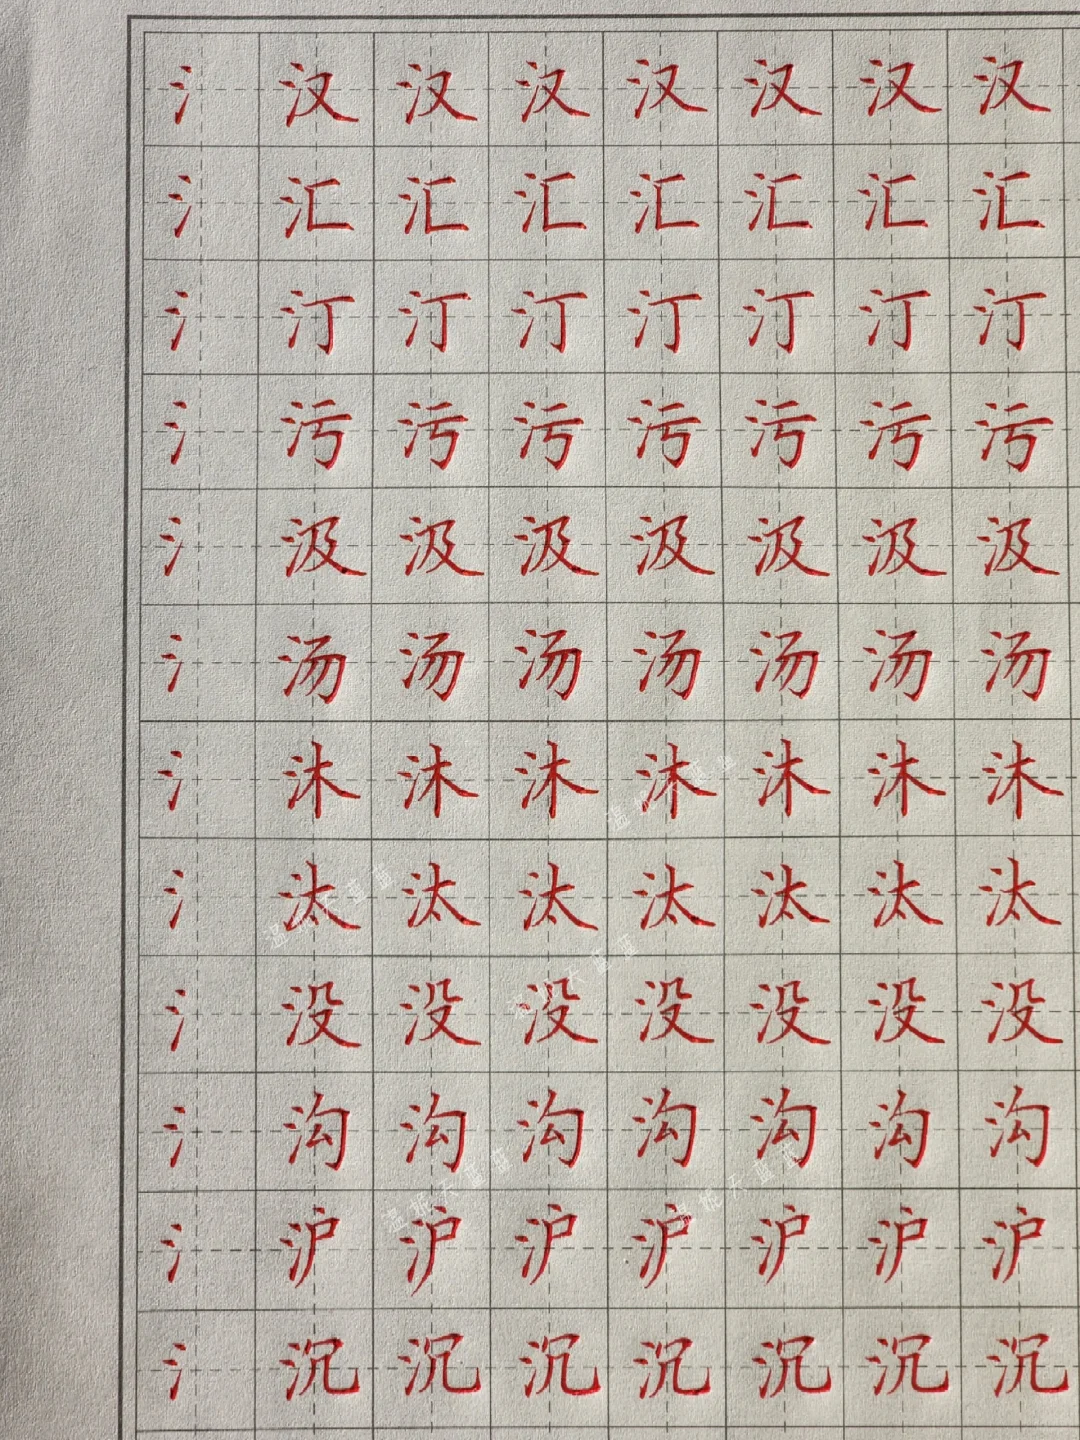 氵 汉 汉 汉 汉 汉 汉 汉
氵 汇 汇 汇 汇 汇 汇 汇
氵 汀 汀 汀 汀 汀 汀 汀
氵 污 污 污 污 污 污 污
氵 汲 汲 汲 汲 汲 汲 汲
氵 汤 汤 汤 汤 汤 汤 汤
氵 沐 沐 沐 沐 沐 沐 沐
氵 汰 汰 汰 汰 汰 汰 汰
氵 没 没 没 没 没 没 没
氵 沟 沟 沟 沟 沟 沟 沟
氵 沪 沪 沪 沪 沪 沪 沪
氵 沉 沉 沉 沉 沉 沉 沉